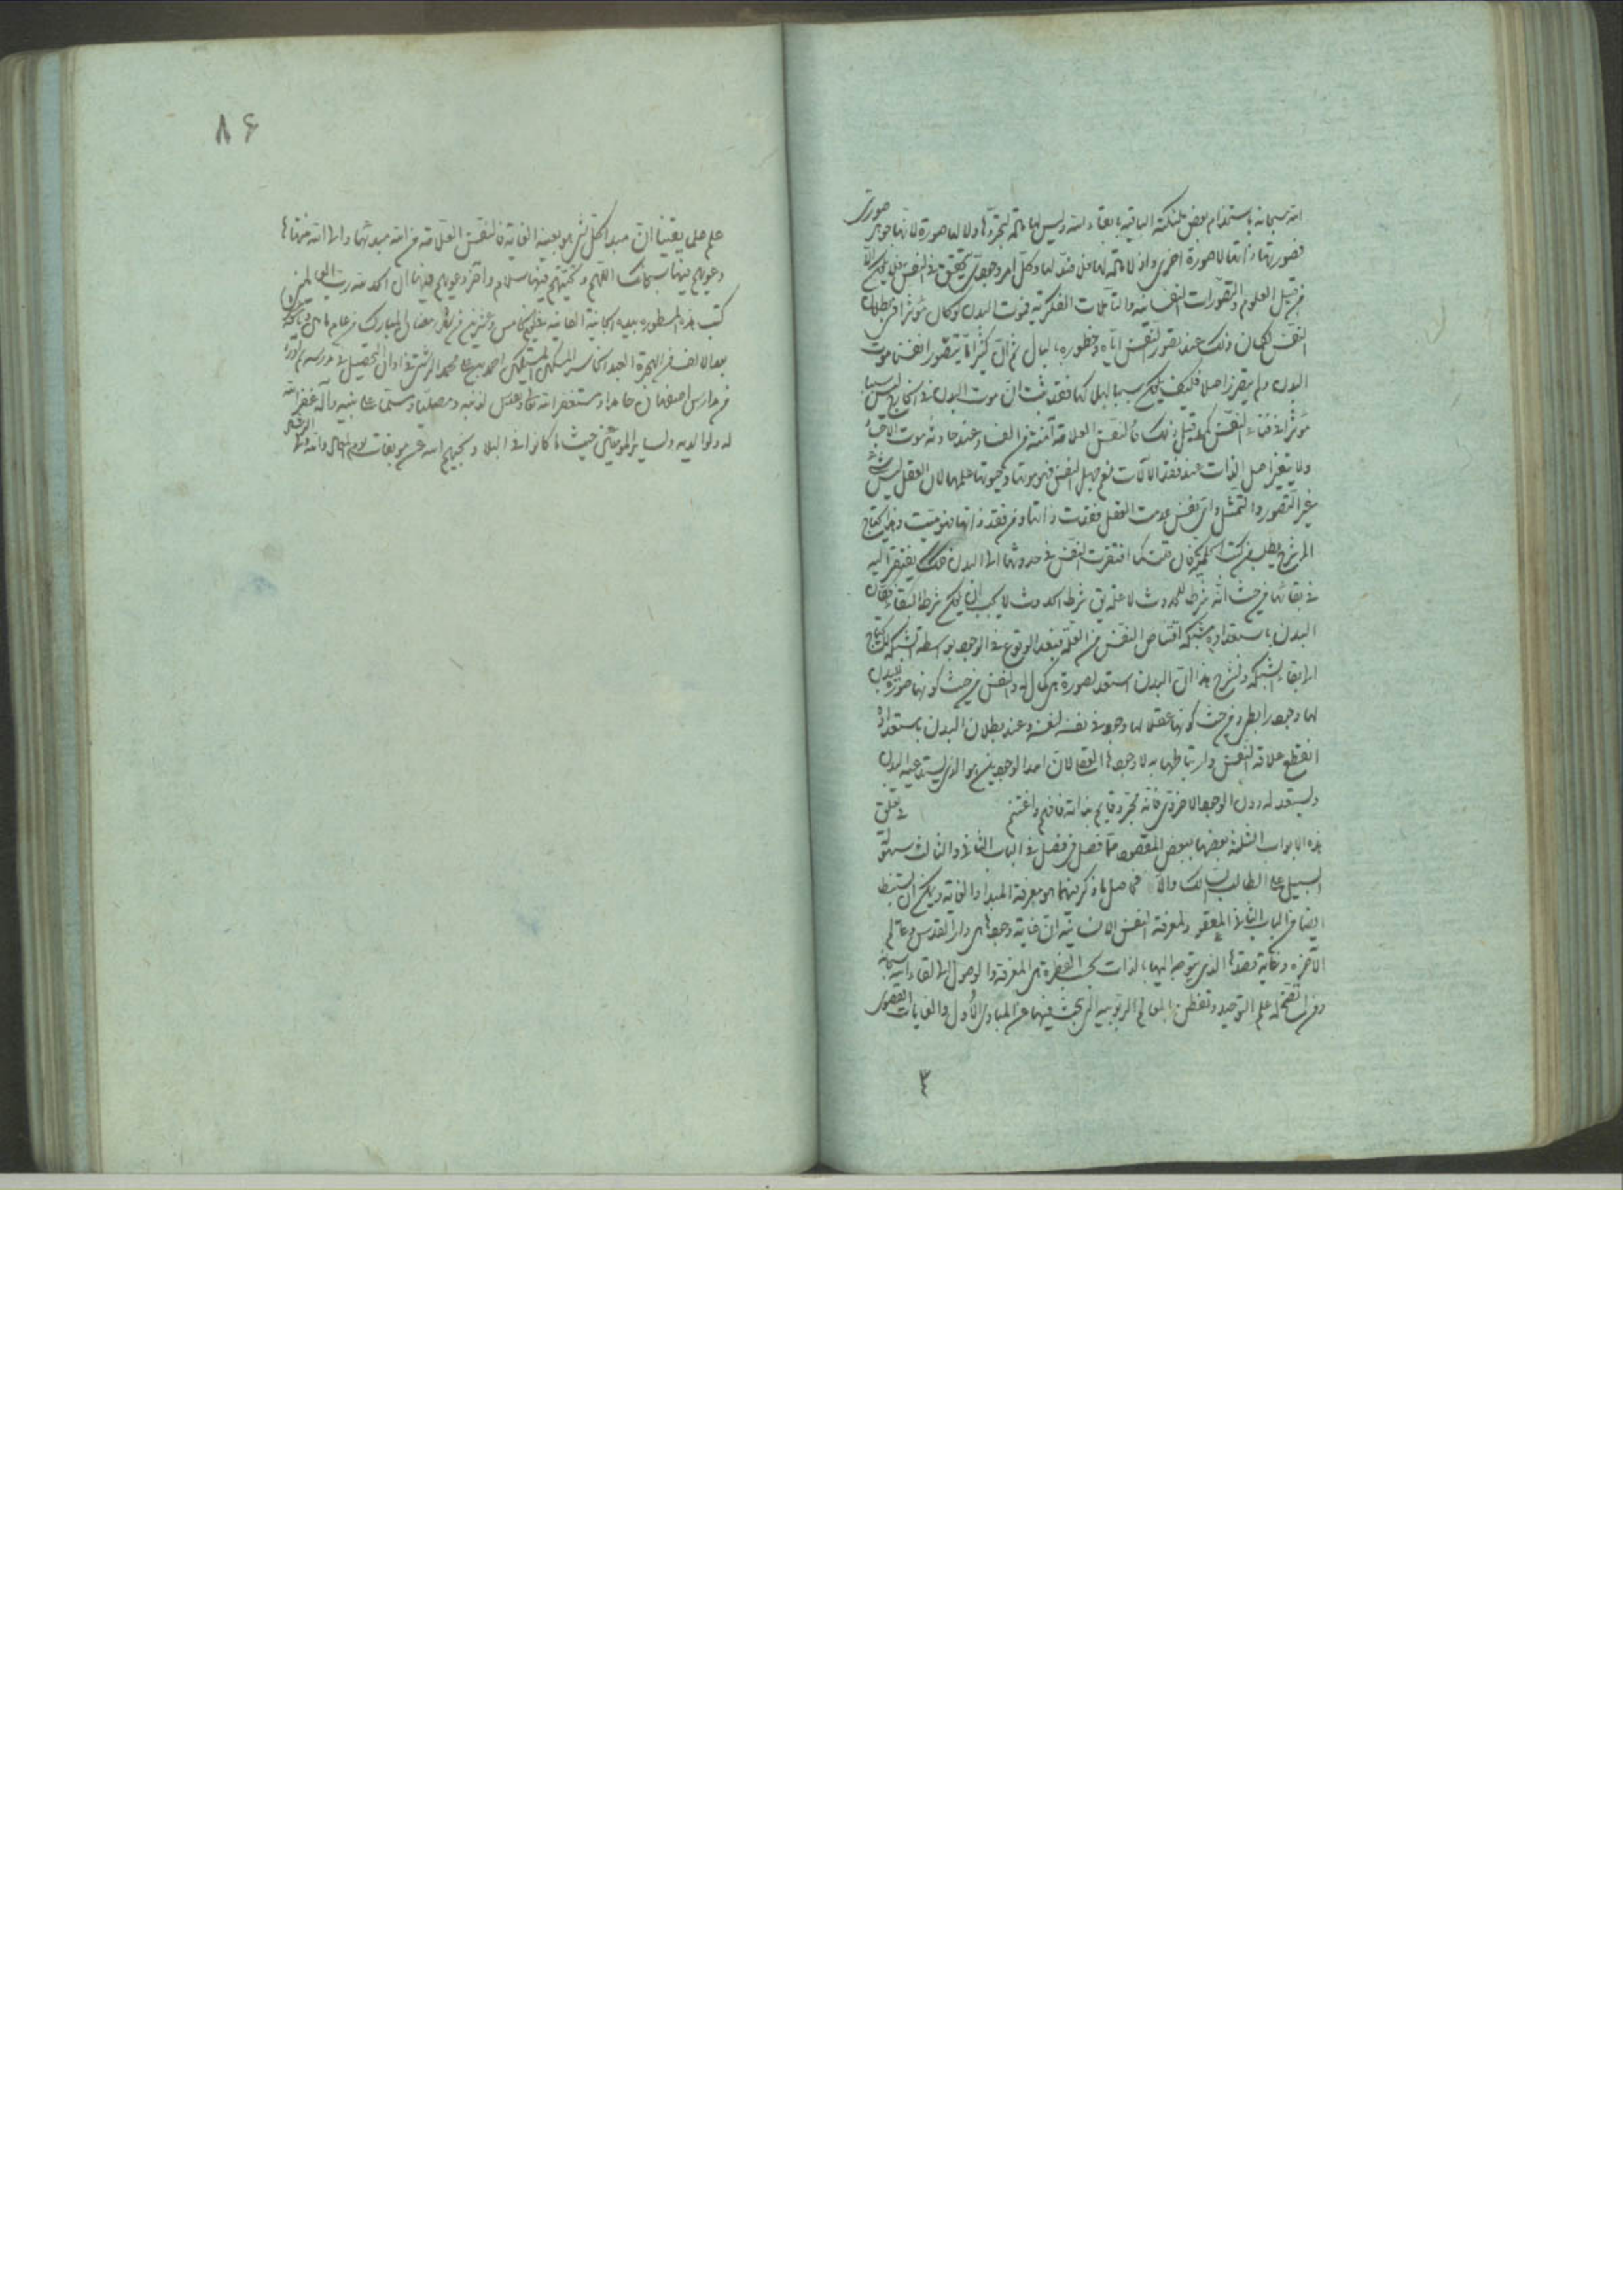 الله سبحانه باستخدام بعض ملئكته الباقية بابقاء الله وليس لها مادة لتجردها ولا لها صورة لانها جوهر صورى
فصورتها ذاتها لا صورة اخرى واذ لا مادة لها فلا ضد لها وكل امر وجودى يتحقق فى النفس فلا يكون الا
من قبيل العلوم والتصورات النفسانية والتأملات الفكرية فموت البدن لو كان مؤثرا فى بطلان
النفس لكان ذلك عند تصور النفس اياه وخطوره بالبال ثم ان كثيرا ما يتصور انفسنا موت
البدن ولم يتضرر اصلا فكيف يكون سببا لهلاكها فقد ثبت ان موت البدن فى الخارج ليس سببا
مؤثرا فى فناء النفس كما قبل ذلك فالنفس العلامة آمنة من الفساد عند حادثة موت الاجساد
ولا يتغير اصل الذات عند فقد الآلات نعم جهل النفس فهو موتها وحيوتها علمها لان العقل ليس شيئا
غير التصور والتمثل واى نفس عدمت العقل فقدت ذاتها ومن فقد ذاتها فهو ميت وهذا يحتاج
الى شرح يطلب من كتب الحكمية فان قلت كما افتقرت النفس فى حدوثها الى البدن فكذلك يفتقر اليه
فى بقائها من حيث انه شرط للحدوث لا علة قلت شرط الحدوث لا يجب ان يكون شرط البقاء فكان
البدن باستعداده شبكة اقتناص النفس من العلة فبعد الوقوع فى الوجود بواسطة الشبكة لا يحتاج
الى بقاء الشبكة وشرح هذا ان البدن استعد لصورة هى كمال له والنفس من حيث كونها صورة للبدن
لها وجود رابطى ومن حيث كونها عقلا لها وجود فى نفسه لنفسه وعند بطلان البدن باستعداده
انقطع علاقة النفس وارتباطها به لا وجودها العقلى لان احد الوجودين هو الذى يستدعيه البدن
ويستعد له دون الوجود الاخروى فانه مجرد قايم بذاته فافهم واغتنم فى تعلق
هذه الابواب الثلثة بعضها ببعض المقصود مما فصل فى فصل فى الباب الثانى والثالث سهولة
السبيل على الطالب السالك والا فحاصل ما ذكر فيهما هو معرفة المبدأ والغاية ويمكن ان يستنبط
ايضا من الباب الثانى المعقود لمعرفة النفس الانسانية ان غاية وجودها هى دار القدس وعالم
الآخرة وغاية قصدها الذى يتوجه اليها بالذات بحسب الفطرة هى المعرفة والوصول الى لقاء الله سبحانه
ومن انفتح له علم التوحيد وتفطن بالمعالم الربوبية التى يبحث فيها عن المبادى الأول والغايات القصوى
٣
٨۶
علم علما يقينا ان مبدأ كل شئ هو بعينه الغاية فالنفس العلامة من الله مبدئها والى الله منتهاها
دعويهم فيها سبحانك اللهم وتحيتهم فيها سلام وآخر دعويهم فيها ان الحمد لله رب العالمين
كتب هذه المسطورة بيده الجانية الفانية فى يوم الخامس وعشرين من شهر رمضان المبارك من عام
بعد الالف من الهجرة العبد الخاسر المسكين المستكين احمد بن على محمد الرشتى فى اوان التحصيل فى مدرسة
من مدارس اصفهان حامدا ومستغفرا لله تعالى لذنبه ومصليا ومسلما على نبيه وآله غفر الله
له ولوالديه ولساير المؤمنين حيث ما كانوا فى البلاد ونجيهم الله عن موبقات يوم